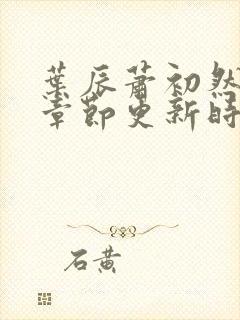 葉辰蕭初然
章節更新時
石黃